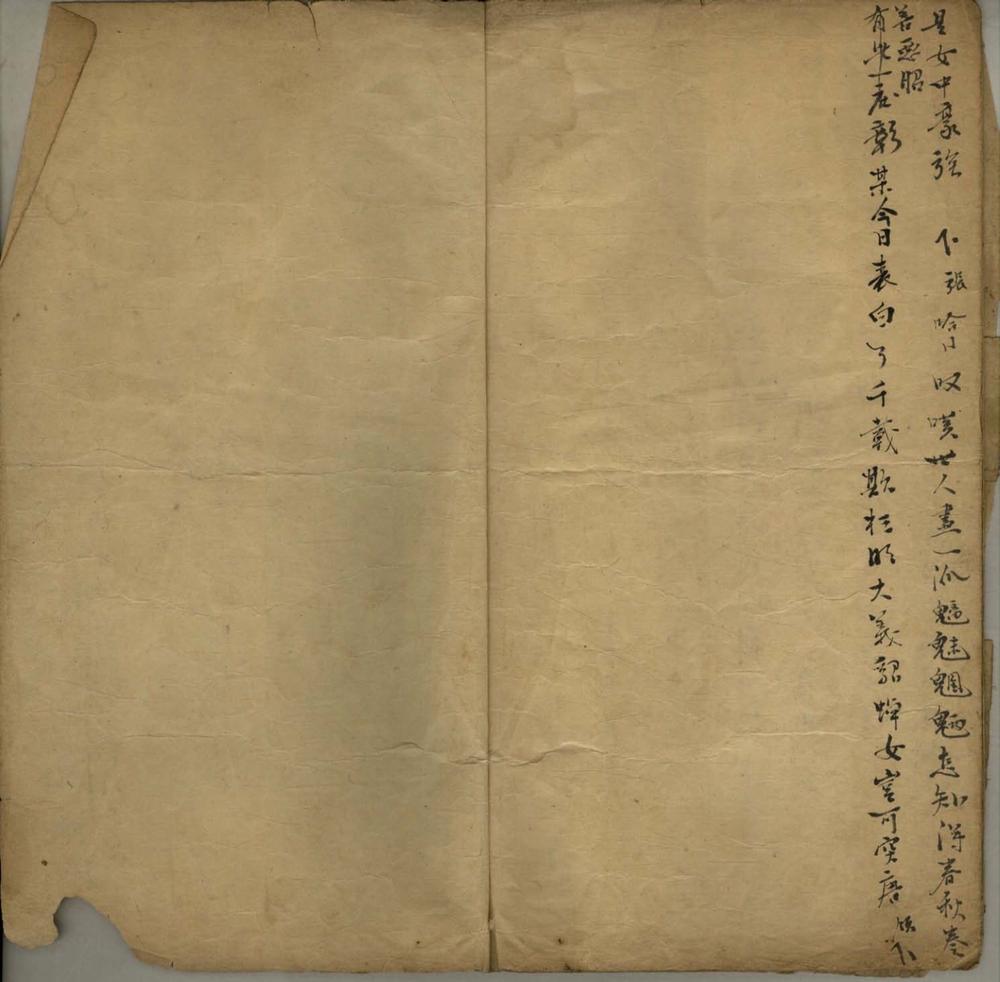 是女中豪強　下張哈卜叹嘆世人盡一派魑魅魍魎怎知得春秋卷
善惡昭
有此一表彰某今日表白了千載斯摽明大義貂蟬女豈可突唐　下